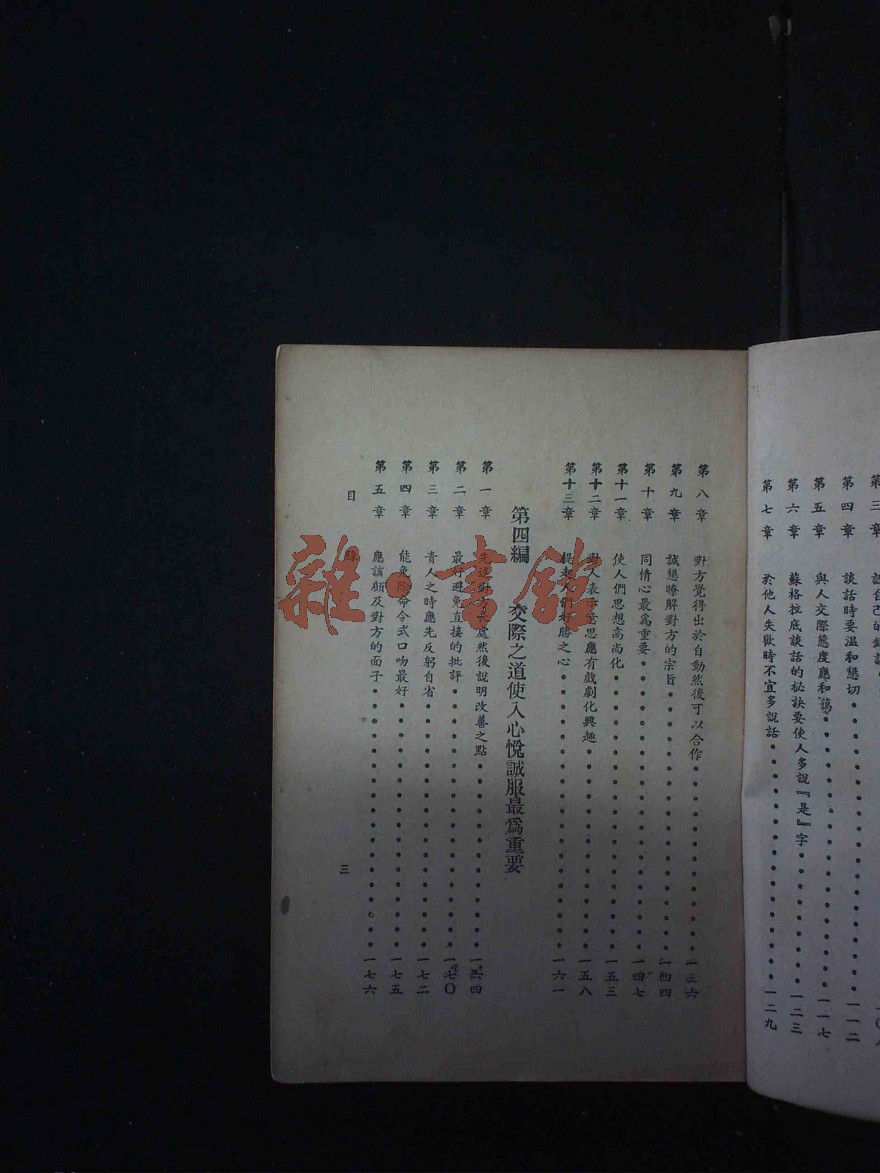 第三章
第四章　談話時要溫和懇切　一一二
第五章　與人交際態度應和藹　一一七
第六章　蘇格拉底談話的秘訣要使人多說『是』字　一二三
第七章　於他人失歡時不宜多說話　一二九
第八章　對方覺得出於自動然後可以合作　一三六
第九章　誠懇瞭解對方的宗旨　一四四
第十章　同情心最爲重要　一四七
第十一章　使人們思想高尚化　一五三
第十二章　對人表示意思應有戲劇化興趣　一五八
第十三章　提起人們好勝之心　一六一
第四編　交際之道使人心悅誠服最爲重要
第一章　先述對方長處然後說明改善之點　一六四
第二章　最好避免直接的批評　一七〇
第三章　責人之時應先反躬自省　一七二
第四章　能免除命令式口吻最好　一七五
第五章　應該顧及對方的面子　一七六
目錄　三
雜·書館